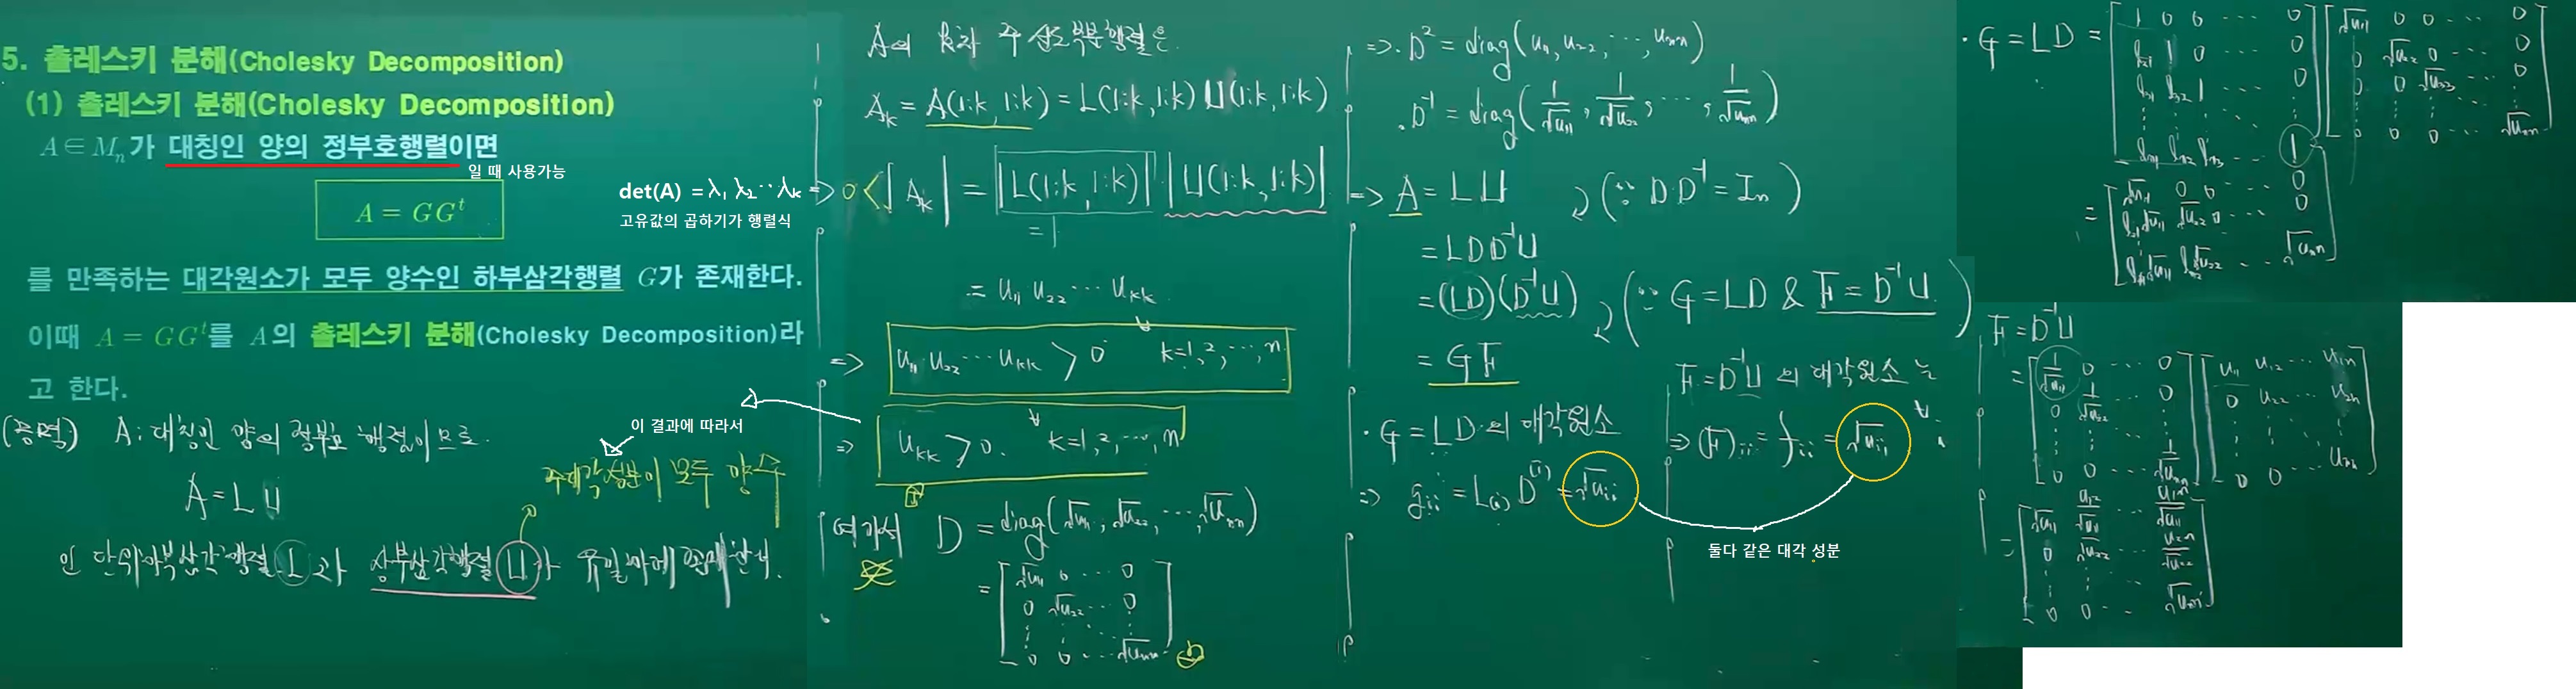 5. 촐레스키 분해(Cholesky Decomposition)
(1) 촐레스키 분해(Cholesky Decomposition)
A∈Mₙ가 대칭인 양의 정부호행렬이면
일 때 사용가능
A = GGᵗ
를 만족하는 대각원소가 모두 양수인 하부삼각행렬 G가 존재한다.
이때 A = GGᵗ를 A의 촐레스키 분해(Cholesky Decomposition)라
고 한다.
(증명) A: 대칭인 양의 정부호 행렬이므로
A = LU
인 단위하부삼각행렬 L과 상부삼각행렬 U가 유일하게 존재한다.
det(A) = λ₁ λ₂ ⋯ λₖ
고유값의 곱하기가 행렬식
이 결과에 따라서
주대각성분이 모두 양수
A의 k차 주 선도부분행렬은
Aₖ = A(1:k, 1:k) = L(1:k, 1:k) U(1:k, 1:k)
⇒ 0 < |Aₖ| = |L(1:k, 1:k)| |U(1:k, 1:k)|
= 1
= u₁₁ u₂₂ ⋯ uₖₖ
⇒ u₁₁ u₂₂ ⋯ uₖₖ > 0 ∀ k=1, 2, ⋯, n
⇒ uₖₖ > 0. ∀ k=1, 2, ⋯, n
여기서 D = diag(√u₁₁, √u₂₂, ⋯, √uₙₙ)
= [ √u₁₁ 0 ⋯ 0
0 √u₂₂ ⋯ 0
⋮ ⋮ ⋱ ⋮
0 0 ⋯ √uₙₙ ]
⇒ · D² = diag(u₁₁, u₂₂, ⋯, uₙₙ)
· D⁻¹ = diag(1/√u₁₁, 1/√u₂₂, ⋯, 1/√uₙₙ)
⇒ A = LU (∵ D·D⁻¹ = Iₙ)
= LDD⁻¹U
= (LD)(D⁻¹U) (∵ G = LD & F = D⁻¹U)
= GF
· G = LD의 대각원소
⇒ gᵢᵢ = L₍ᵢ₎ D⁽ⁱ⁾ = √uᵢᵢ
F = D⁻¹U의 대각원소는
⇒ (F)ᵢᵢ = fᵢᵢ = √uᵢᵢ ∀ i
둘다 같은 대각 성분
· G = LD = [ 1 0 0 ⋯ 0
l₂₁ 1 0 ⋯ 0
l₃₁ l₃₂ 1 ⋯ 0
⋮ ⋮ ⋮ ⋮
lₙ₁ lₙ₂ lₙ₃ ⋯ 1 ] [ √u₁₁ 0 0 ⋯ 0
0 √u₂₂ 0 ⋯ 0
0 0 √u₃₃ ⋯ 0
⋮ ⋮ ⋮ ⋮
0 0 0 ⋯ √uₙₙ ]
= [ √u₁₁ 0 0 ⋯ 0
l₂₁√u₁₁ √u₂₂ 0 ⋯ 0
⋮
lₙ₁√u₁₁ lₙ₂√u₂₂ ⋯ √uₙₙ ]
F = D⁻¹U
= [ 1/√u₁₁ 0 ⋯ 0
0 1/√u₂₂ ⋯ 0
⋮ ⋮ ⋮
0 0 ⋯ 1/√uₙₙ ] [ u₁₁ u₁₂ ⋯ u₁ₙ
0 u₂₂ ⋯ u₂ₙ
⋮ ⋮ ⋮
0 0 ⋯ uₙₙ ]
= [ √u₁₁ u₁₂/√u₁₁ ⋯ u₁ₙ/√u₁₁
0 √u₂₂ ⋯ u₂ₙ/√u₂₂
⋮ ⋮ ⋮
0 0 ⋯ √uₙₙ ]